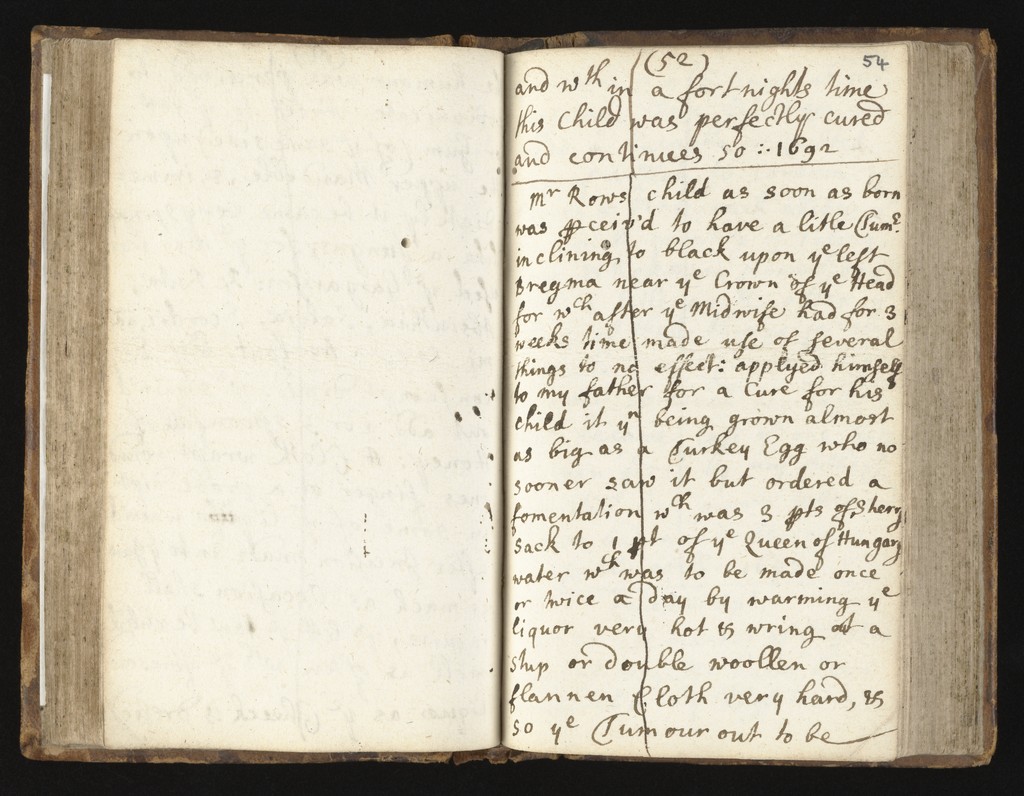 (52)
54
and wth in a fortnights time
this Child was perfectly cured
and continues so :. 1692
Mr Rows child as soon as born
was pceiv'd to have a litle Tumr.
inclining to black upon ye left
Bregma near ye Crown of ye Head
for wch after ye Midwife had for 3
weeks time made use of several
things to no effect: applyed himself
to my father for a Cure for his
child it yn being grown almost
as big as a Turkey Egg who no
sooner saw it but ordered a
fomentation wch was 3 pts of Shery
Sack to 1 pt of ye Queen of Hungary
water wch was to be made once
or twice a day by warming ye
liquor very hot & wring at a
stup or double woollen or
flannen Cloth very hard, &
so ye Tumour out to be